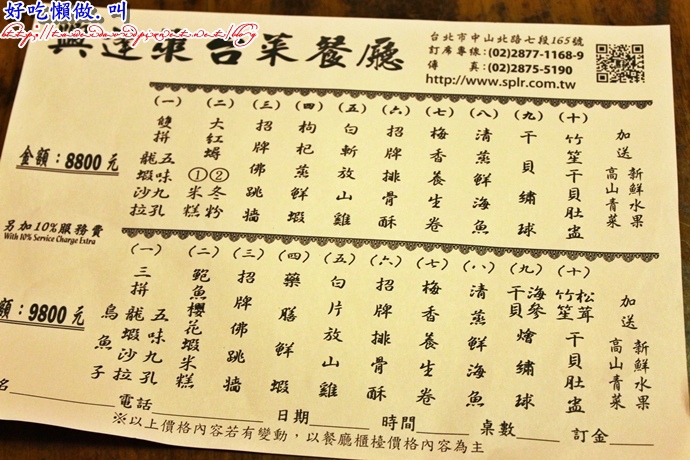 好吃懶做.叫
興蓬萊台菜餐廳
台北市中山北路七段165號
訂席專線:(02)2877-1168-9
傳 真:(02)2875-5190
http://www.splr.com.tw
金額:8800元
(一) 雙拼 龍蝦沙拉 五味九孔
(二) 大紅蟳 ①米糕 ②冬粉
(三) 招牌佛跳牆
(四) 枸杞蒸鮮蝦
(五) 白斬放山雞
(六) 招牌排骨酥
(七) 梅香養生卷
(八) 清蒸鮮海魚
(九) 干貝繡球
(十) 竹笙干貝肚盅
加送 新鮮水果 高山青菜
另加10%服務費
With 10% Service Charge Extra
額:9800元
(一) 三拼 烏魚子 龍蝦沙拉 五味九孔
(二) 鮑魚櫻花蝦米糕
(三) 招牌佛跳牆
(四) 藥膳鮮蝦
(五) 白片放山雞
(六) 招牌排骨酥
(七) 梅香養生卷
(八) 清蒸鮮海魚
(九) 海參干貝燴繡球
(十) 松茸竹笙干貝肚盅
加送 新鮮水果 高山青菜
名 電話 日期 時間 桌數 訂金
※以上價格內容若有變動,以餐廳櫃檯價格內容為主